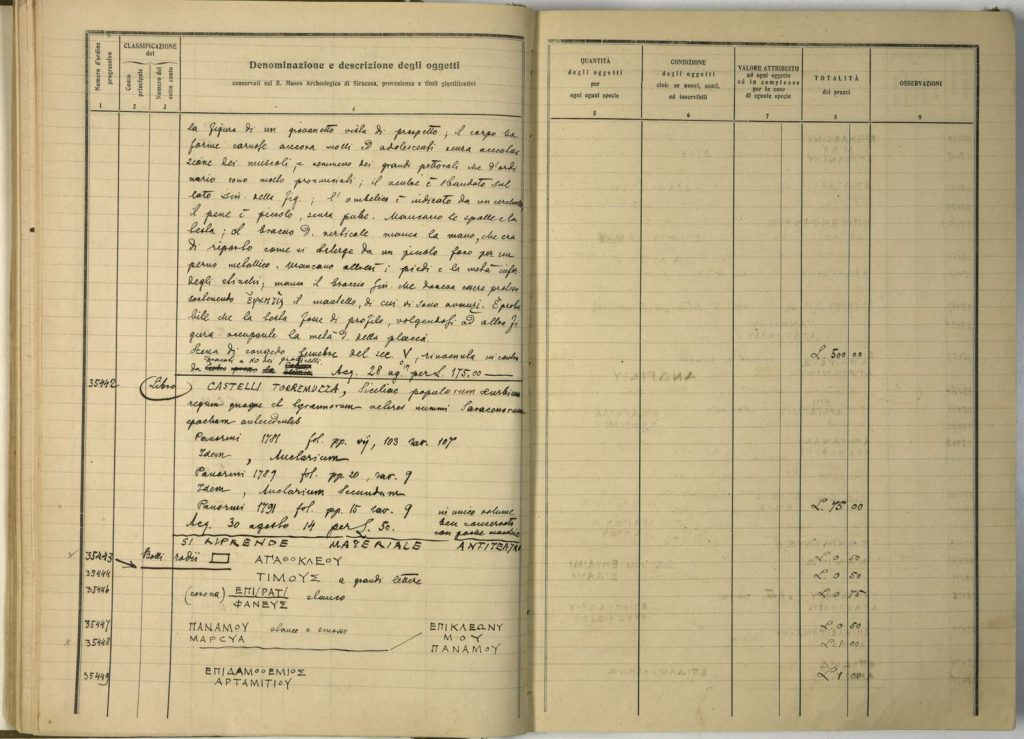 Numero d'ordine progressivo
CLASSIFICAZIONE
del
Conto principale
Numero del sotto conto
Denominazione e descrizione degli oggetti
conservati nel R. Museo Archeologico di Siracusa, provenienza e titoli giustificativi
1 2 3 4
la figura di un giovanetto vista di prospetto; il corpo ha
forme carnose ancora molli ed adolescenti senza accentua-
zione dei muscoli, e nemmeno dei grandi pettorali che d'ordi
nario sono molto pronunciati; il ventre è sbandato sul
lato sin. della fig.; l'ombelico è indicato da un cerchietto
il pene è piccolo, senza pube. Mancano le spalle e la
testa; al braccio D. verticale manca la mano, che era
di riporto come si deterge da un piccolo foro per un
perno metallico. Mancano altresì i piedi e la metà infer.
degli stinchi; manca il braccio sin. che doveva essere
il mantello, di cui vi sono avanzi. È proba
bile che la testa fosse di profilo, volgentesi ad altra fi
gura occupante la metà D. della placca.
Scena di congedo funebre del sec. V, rinvenuta in
da Acq. 28 ag. per L. 175,00
35442 (Libro) CASTELLI TORREMUZZA, Siciliae populorum et urbium
regum quoque et tyrannorum veteres nummi Saracenorum
epocham antecedentes
Panormi 1781 fol. pp. vij, 103 tav. 107
Idem, Auctarium
Panormi 1789 fol. pp. 20, tav. 9
Idem, Auctarium Secundum
Panormi 1791 fol. pp. 15 tav. 9 in unico volume
Acq. 30 agosto 14 per L. 50. ben conservato
con poche macchie
SI RIPRENDE MATERIALE ANTITEATRO
35443 Bolli rodii ΑΓΑΘΟΚΛΕΟΥ
35444 ΤΙΜΟΥΣ a grandi lettere
35446 (corona) ΕΠΙ/ΡΑΤ/
ΦΑΝΕΥΣ stanco
35447 ΠΑΝΑΜΟΥ ΕΠΙΚΛΕΩΝΥ
35448 ΜΑΡΣΥΑ ΜΟΥ
ΠΑΝΑΜΟΥ
35449 ΕΠΙΔΑΜΟΘΕΜΙΟΣ
ΑΡΤΑΜΙΤΙΟΥ
QUANTITÀ
degli oggetti
per
ogni egual specie
CONDIZIONE
degli oggetti
cioè: se nuovi, usati,
od inservibili
VALORE ATTRIBUITO
ad ogni oggetto
od in complesso
per le cose
di eguale specie
TOTALITÀ
dei prezzi
OSSERVAZIONI
5 6 7 8 9
L. 500 00
L. 75 00
L. 0 50
L. 0 50
L. 0 75
L. 0 50
L. 1 00
L. 1 00